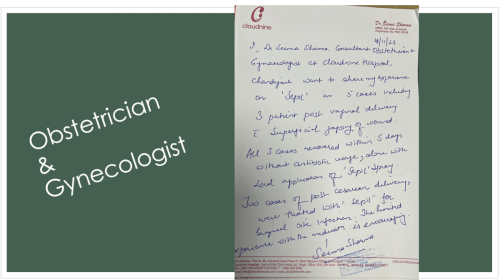 Obstetrician
&
Gynecologist
cloudnine
Dr Seema Sharma
I, Dr Seema Sharma, Consultant Obstetrician
Gynaecologist at Cloudnine Hospital,
Chandigarh want to share my experience
on 'Sepil' in 5 cases including
3 patient post vaginal delivery
c̄ Superficial gaping of wound.
All 3 cases recovered within 5 days
without antibiotic usage, alone with
Local application of 'Sepil' Spray.
Two cases of post cesarean delivery,
were treated with 'Sepil' for
Surgical site infection. The limited
experience with the medicine is encouraging.
Seema Sharma